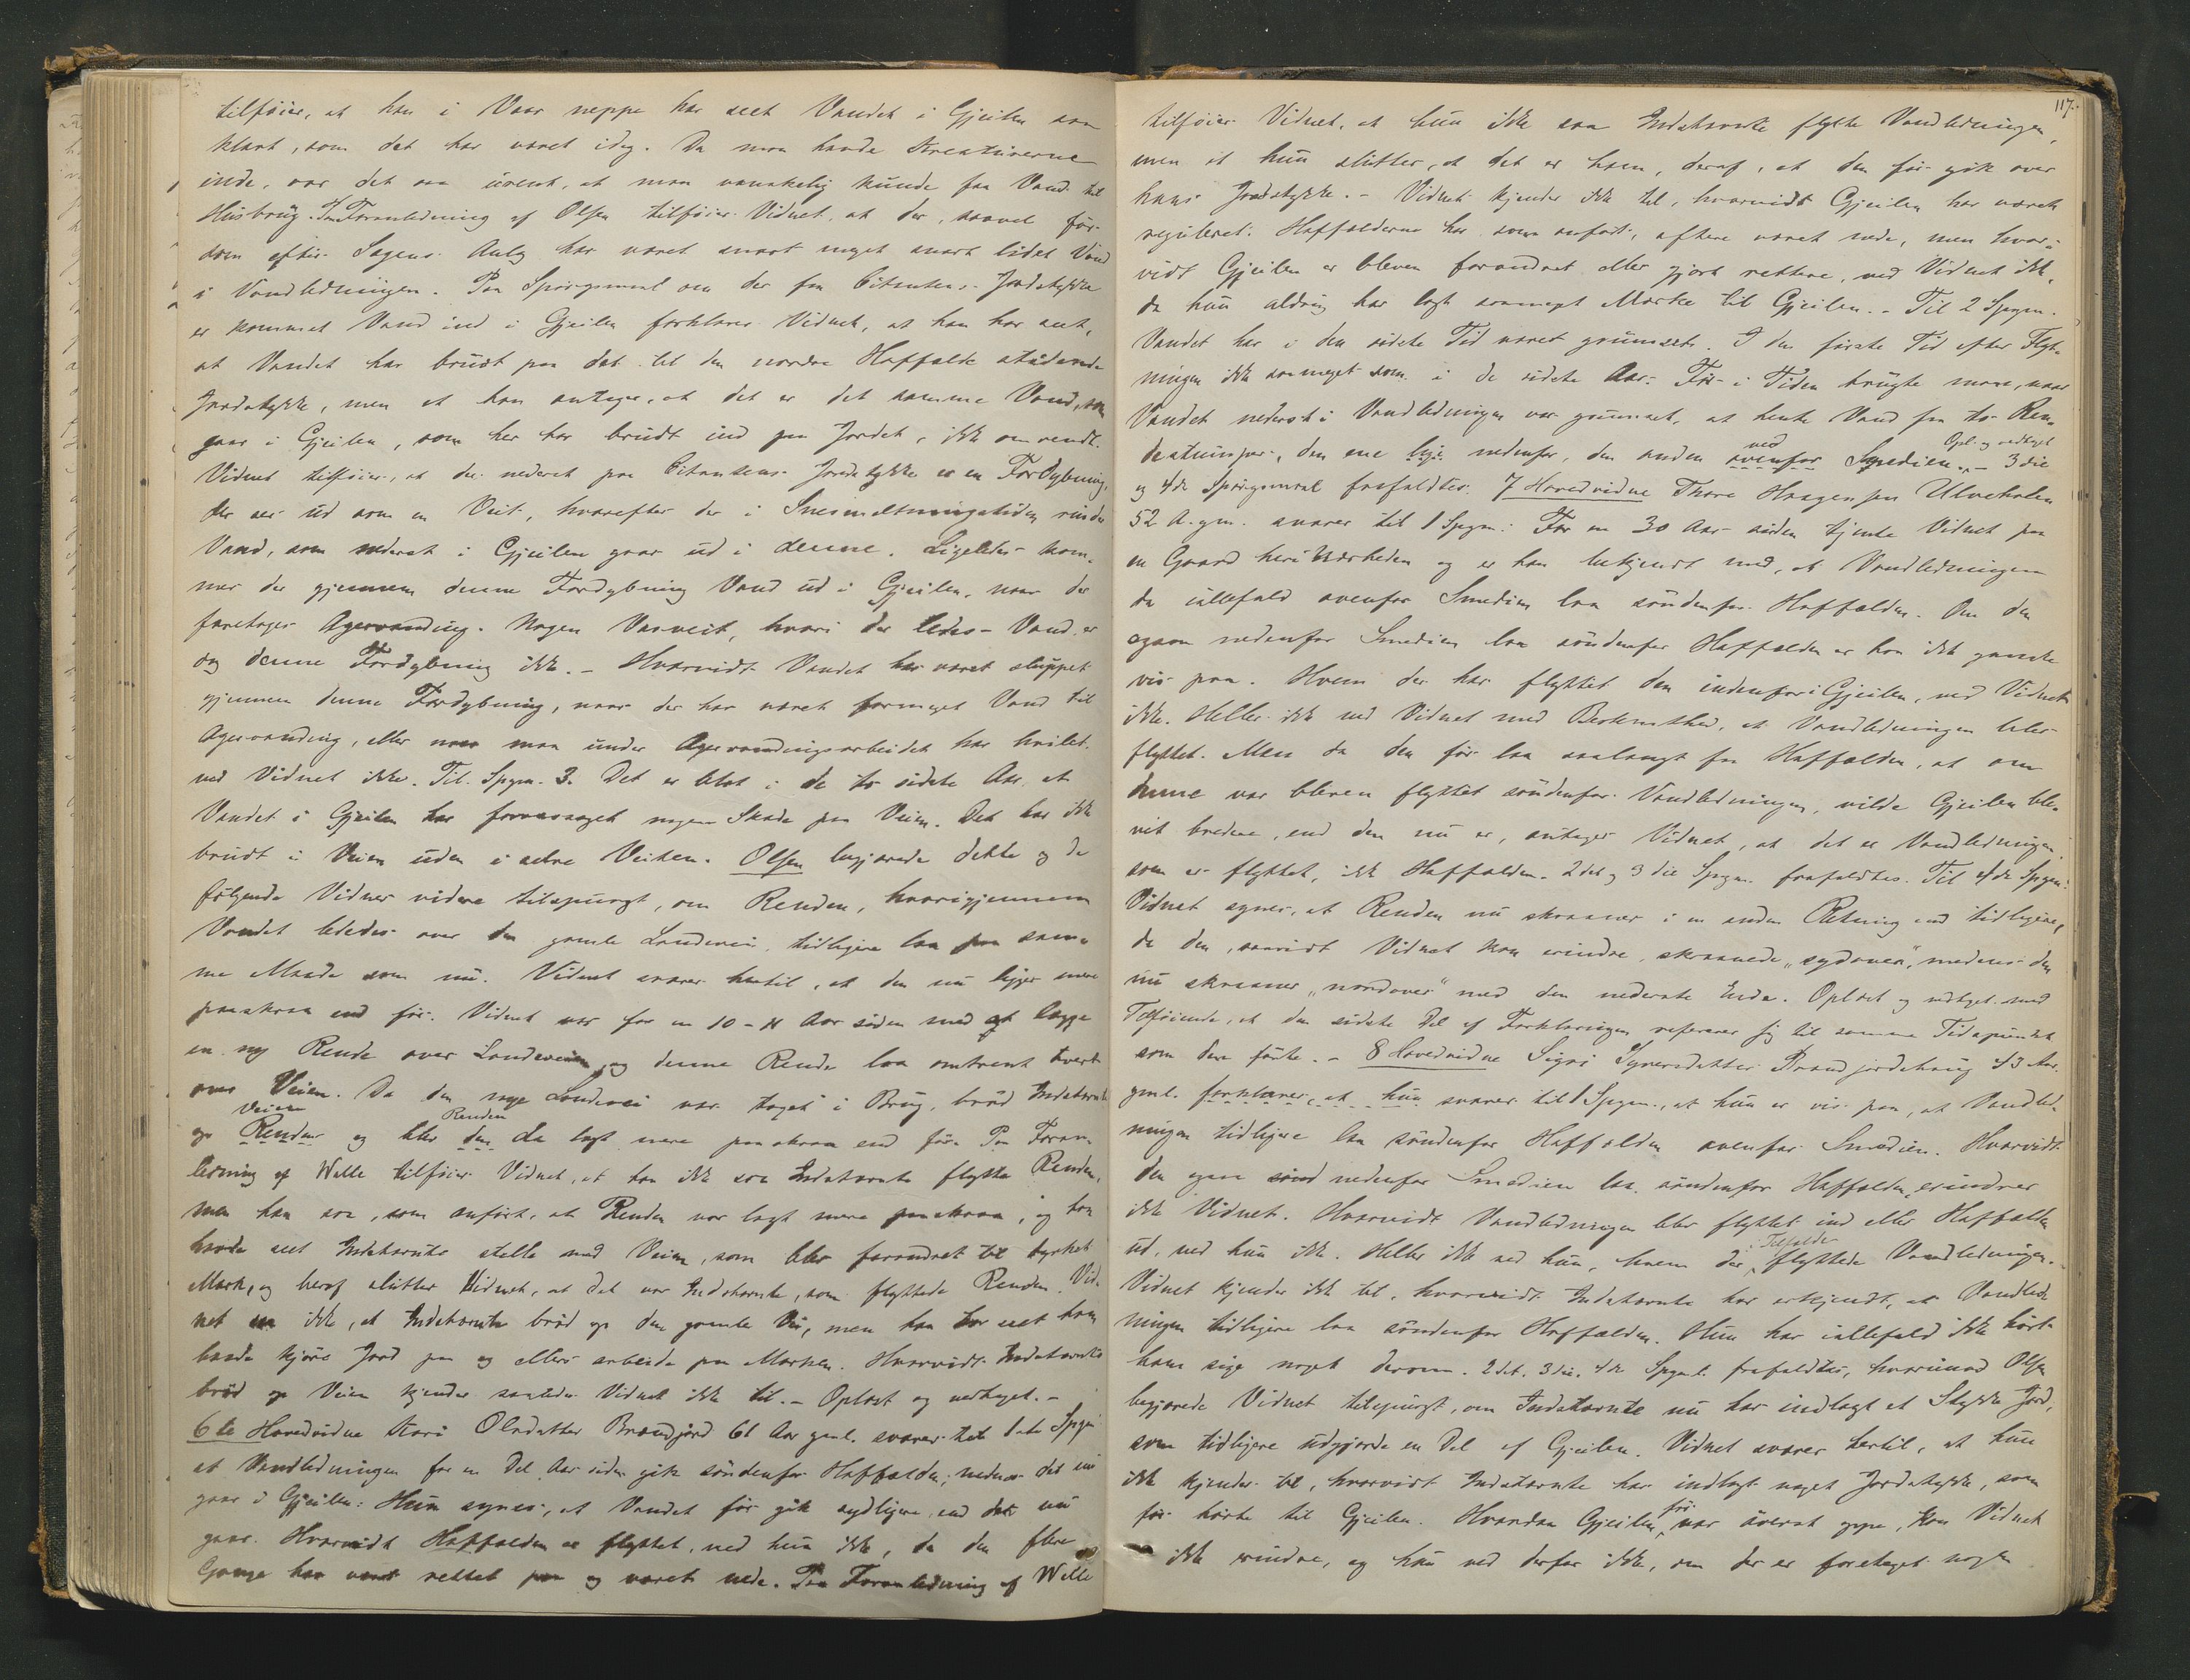 tilføier, at han i Vaar neppe har seet Vandet i Gjeilen saa
klart, som det har været idag. Da man havde Kreaturerne
inde, var det saa urent, at man vanskelig kunde faa Vand til
Husbrug. Paa Foranledning af Olsen tilføier Vidnet, at der, saavel før
som efter Sagens Anlæg har været snart meget snart lidet Vand
i Vandledningen. Paa Spørgsmaal om der fra Citantens Jordstykke
er kommet Vand ind i Gjeilen forklarer Vidnet, at han har seet,
at Vandet har brudt paa det til den nordre Haffælde stødende
Jordstykke, men at han antager, at det er det samme Vand, som
gaar i Gjeilen, som her har brudt ind paa Jordet, ikke omvendt.
Vidnet tilføier, at der nederst paa Citantens Jordstykke er en Fordybning,
der ser ud som en Veit, hvorefter der i Snesmeltningstiden rinder
Vand, som nederst i Gjeilen gaar ud i denne. Ligeledes kom-
mer der gjennem denne Fordybning Vand ud i Gjeilen, naar der
foretages Agervanding. Nogen Vasveit, hvori der ledes Vand, er
dog denne Fordybning ikke. – Hvorvidt Vandet har været sluppet
gjennem denne Fordybning, naar der har været formeget Vand til
Agervanding, eller naar man under Agervandingsarbeidet har hvilet,
ved Vidnet ikke. Til Spgm. 3. Det er blot i de to sidste Aar, at
Vandet i Gjeilen har foraarsaget nogen Skade paa Veien. Det har ikke
brudt i Veien uden i selve Veiten. Olsen begjærede dette og de
følgende Vidner videre tilspurgt, om Renden, hvorigjennem
Vandet lededes over den gamle Landevei, tidligere laa paa sam-
me Maade som nu. Vidnet svarer hertil, at den nu ligger mere
paaskraa end før. Vidnet var for en 10-11 Aar siden med at lægge
en ny Rende over Landeveien, og denne Rende laa omtrent tvert
over Veien. Da den nye Landevei var taget i Brug, brød Indstevnte
Veien Renden
op Renden og blev den da lagt mere paaskraa end før. Paa Foran-
ledning af Welle tilføier Vidnet, at han ikke saa Indstevnte flytte Renden,
men han saa, som anført, at Renden var lagt mere paaskraa, og han
havde seet Indstevnte stelle med Veien, som blev forandret til dyrket
Mark, og heraf slutter Vidnet, at det var Indstevnte, som flyttede Renden. Vid-
net saa ikke, at Indstevnte brød op den gamle Vei, men han har seet ham
baade kjøre Jord paa og ellers arbeide paa Marken. Hvorvidt Indstevnte
brød op Veien kjender saaledes Vidnet ikke til. – Oplæst og vedtaget. –
6te Hovedvidne Kari Olsdatter Brandjord 61 Aar gml. svarer til 1ste Spgm
at Vandledningen for en Del Aar siden gik søndenfor Haffælden; medens det nu
gaar i Gjeilen: Hun synes, at Vandet før gik sydligere, end det nu
gaar. Hvorvidt Haffælden er flyttet, ved hun ikke, da den flere
Gange har været rettet paa og været nede. Paa Foranledning af Welle
117.
tilføier Vidnet, at hun ikke saa Indstevnte flytte Vandledningen,
men at hun slutter, at det er ham, deraf, at den før gik over
hans Jordstykke. – Vidnet kjender ikke til, hvorvidt Gjeilen har været
reguleret. Haffælderne har som anført, oftere været nede, men hvor-
vidt Gjeilen er bleven forandret eller gjort rettere, ved Vidnet ikke,
da hun aldrig har lagt saameget Mærke til Gjeilen. – Til 2 Spgm.
Vandet har i den sidste Tid været grumset. I den første Tid efter Flyt-
ningen ikke saameget som i de sidste Aar. Før i Tiden brugte man, naar
Vandet nederst i Vandledningen var grumset, at hente Vand fra to Ren-
ved Opl. og vedtaget
destumper, den ene lige nedenfor, den anden ovenfor Smedien. – 3die
og 4de Spørgsmaal frafaldtes. 7 Hovedvidne Thore Haagensen Ulveholen
52 A. gm. svarer til 1 Spgm: For en 30 Aar siden tjente Vidnet paa
en Gaard heri Nærheden og er han bekjendt med, at Vandledningen
da iallefald ovenfor Smedien laa søndenfor Haffælden. Om den
ogsaa nedenfor Smedien laa søndenfor Haffælden er han ikke ganske
vis paa. Hvem der har flyttet den indenfor i Gjeilen, ved Vidnet
ikke. Heller ikke ved Vidnet med Bestemthed, at Vandledningen blev
flyttet. Men da den før laa saalangt fra Haffælden, at om
denne var bleven flyttet søndenfor Vandledningen, vilde Gjeilen ble-
vet bredere, end den nu er, antager Vidnet, at det er Vandledningen,
som er flyttet, ikke Haffælden. 2det og 3die Spgm. frafaldtes. Til 4de Spgm:
Vidnet synes, at Renden nu skraaner i en anden Retning end tidligere,
da den, saavidt Vidnet kan erindre, skraanede „sydover“, medens den
nu skraaner „nordover“ med den nederste Ende. Oplæst og vedtaget med
Tilføiende, at den sidste Del af Forklaringen refererer sig til samme Tidspunkt
som den første. – 8 Hovedvidne Sigri Syversdatter Brandjordshaug 43 Aar
gml. forklarer, at hun svarer til 1 Spgm., at hun er vis paa, at Vandled-
ningen tidligere laa søndenfor Haffælden ovenfor Smedien. Hvorvidt
den ogsaa nedenfor Smedien laa søndenfor Haffælden, erindrer
ikke Vidnet. Hvorvidt Vandledningen blev flyttet ind eller Haffælden
i Tilfælde
ud, ved hun ikke. Heller ikke ved hun, hvem der flyttede Vandledningen.
Vidnet kjender ikke til, hvorvidt Indstevnte har erkjendt, at Vandled-
ningen tidligere laa søndenfor Haffælden. Hun har iallefald ikke hørt
ham sige noget derom. 2det, 3die, 4de Spgm. frafaldtes, hvorimod Olsen
begjærede Vidnet tilspurgt, om Indstevnte nu har indlagt et Stykke Jord,
som tidligere udgjorde en Del af Gjeilen. Vidnet svarer hertil, at hun
ikke kjender til, hvorvidt Indstevnte har indlagt noget Jordstykke, som
før
før hørte til Gjeilen. Hvordan Gjeilen var øverst oppe, kan Vidnet
ikke erindre, og hun ved derfor ikke, om der er foretaget nogen